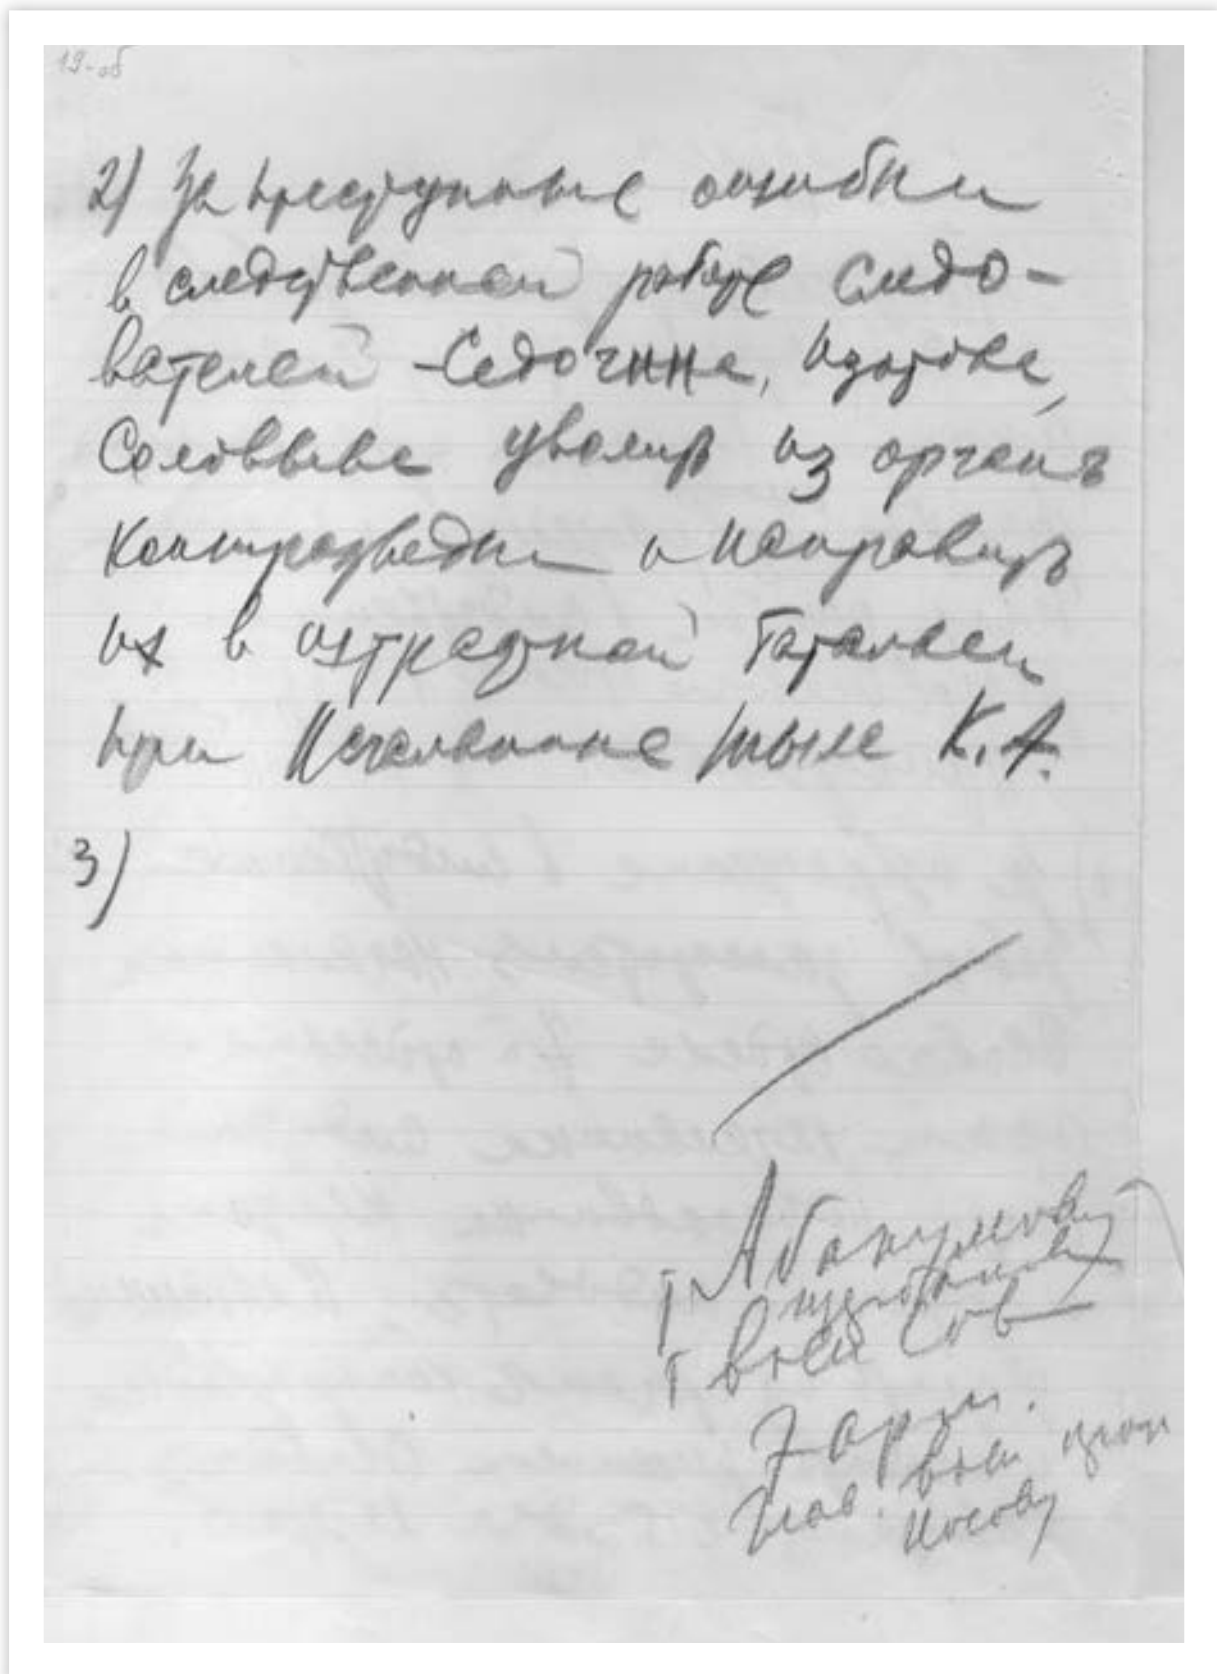 19-об
2) За преступные ошибки
в следственной работе следо-
вателей - Седогина, Изотова,
Соловьева уволить из органов
контрразведки и направить
их в штрафной батальон
при Начальнике тыла К.А.
3)
т. Абакумову
т
воен Сов
7 арм.
Глав. воен
Носову